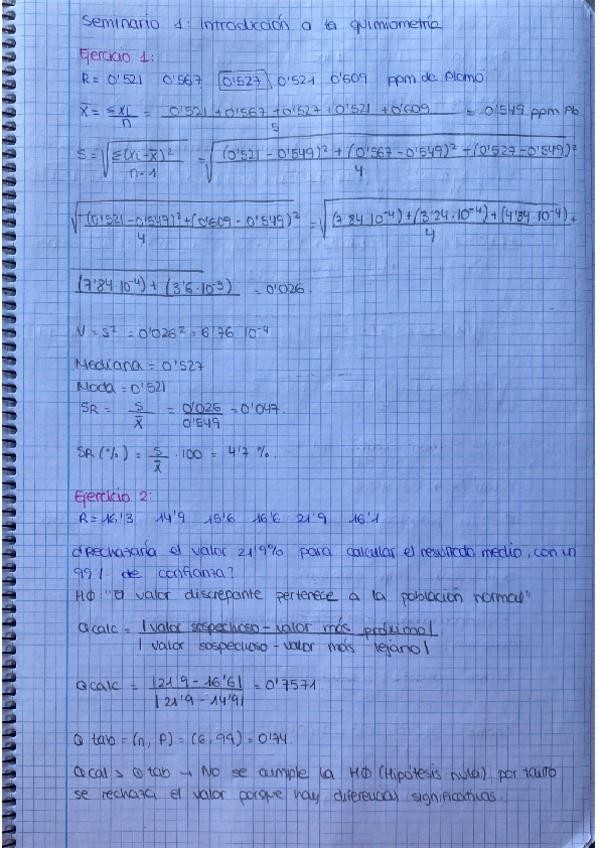 Seminario 1: Introducción a la quimiometría
Ejercicio 1:
R = 0'521 0'567 0'527 0'521 0'609 ppm de Plomo
x̄ = Σxi/n = (0'521 + 0'567 + 0'527 + 0'521 + 0'609)/5 = 0'549 ppm Pb
S = √(Σ(xi - x̄)²/n-1) = √((0'521 - 0'549)² + (0'567 - 0'549)² + (0'527 - 0'549)²/4
√((0'521 - 0'549)² + (0'609 - 0'549)²/4 = √((7'84 10⁻⁴) + (3'24 · 10⁻⁴) + (4'84 10⁻⁴) +/4
(7'84 10⁻⁴) + (3'6 · 10⁻³) = 0'026
V = s² = 0'026² = 6'76 10⁻⁴
Mediana = 0'527
Moda = 0'521
SR = s/x̄ = 0'026/0'549 = 0'047
SR (%) = s/x̄ · 100 = 4'7 %.
Ejercicio 2:
R = 16'3 14'9 15'6 16'6 21'9 16'1
¿Rechazaría el valor 21'9% para calcular el resultado medio, con un
99% de confianza?
HØ: "El valor discrepante pertenece a la población normal"
Qcalc = |valor sospechoso - valor más próximo|/|valor sospechoso - valor más lejano|
Qcalc = |21'9 - 16'6|/|21'9 - 14'9| = 0'7571
Q tab = (n, P) = (6, 99) = 0'74
Qcal > Q tab → No se cumple la HØ (Hipótesis nula), por tanto
se rechaza el valor porque hay diferencias significativas.